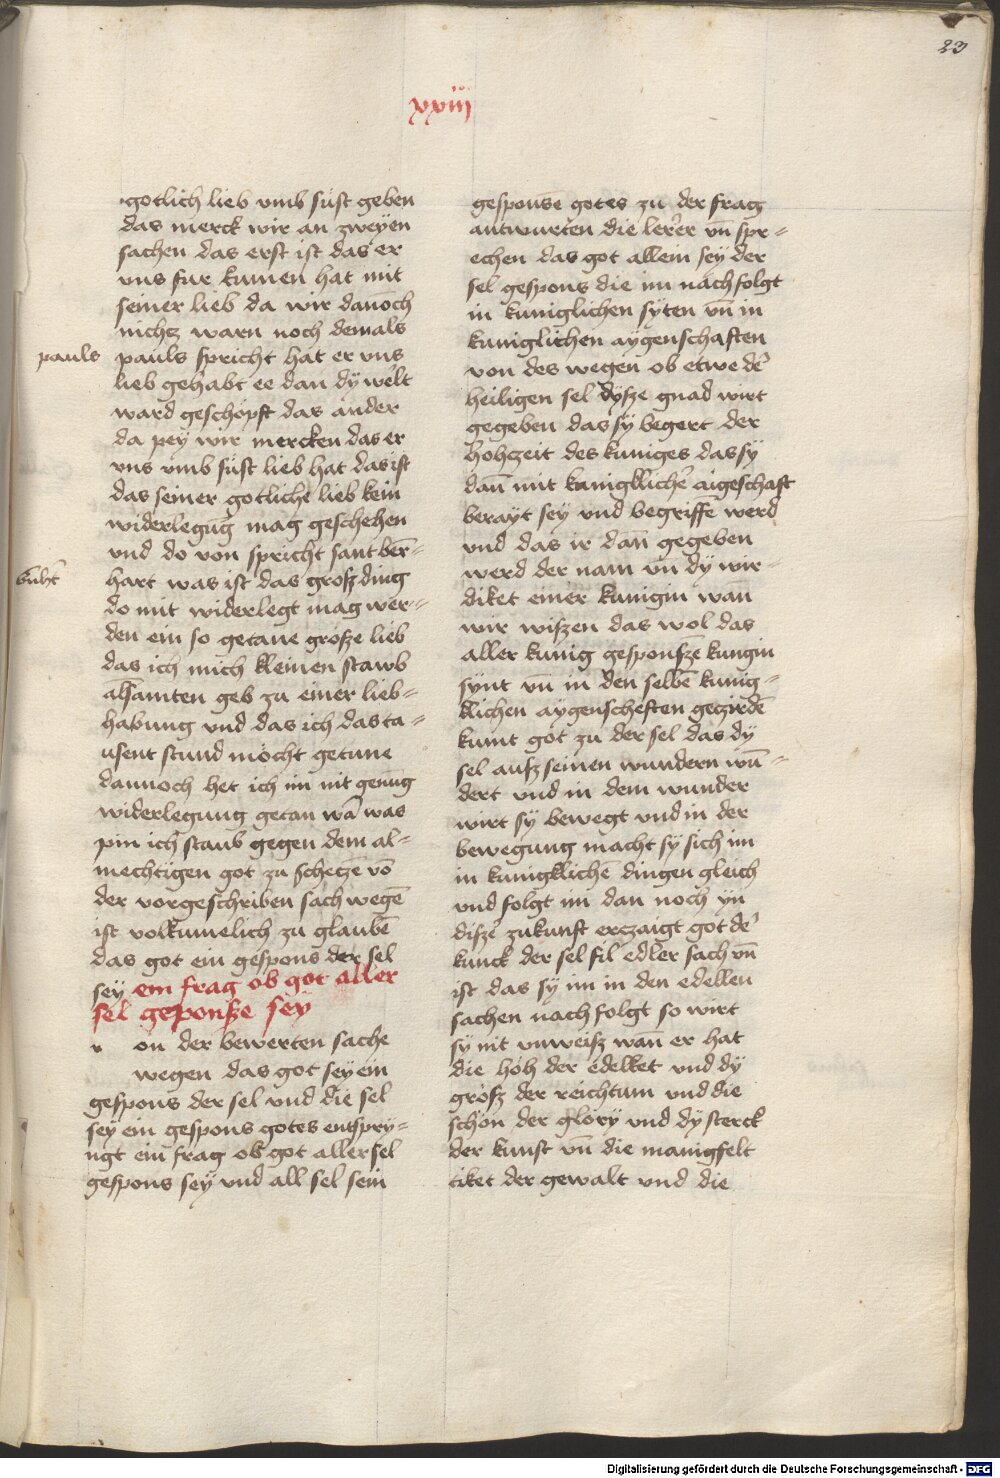 23
xxiij
gotlich lieb vmb süst geben
das merck wir an zweÿen
sachen das erst ist das er
vns für kumen hat mit
seiner lieb da wir dañoch
nichcz warn noch demals
pauls
pauls spricht hat er vns
lieb gehabt ee dan dÿ welt
ward geschöpft das ander
da peÿ wir mercken das er
vns vmb süst lieb hat das ist
das seiner gotliche lieb kein
widerlegūg mag geschehen
vnd do von spricht sant ber=
hart was ist das grosz ding
do mit widerlegt mag wer=
den ein so getane grosze lieb
das ich mich kleinen stawb
alsamten geb zu einer lieb=
habung vnd das ich das ta=
usent stund möcht getune
dannoch het ich im nit genüg
widerlegung getan wā was
pin ich staub gegen dem al=
mechtigen got zu schecze vō
der vorgeschriben sach wegē
ist volkumelich zu glaubē
das got ein gespons der sel
sey ein frag ob got aller
sel geponsze sey
v on der bewerten sache
wegen das got sey ein
gespons der sel vnd die sel
sey ein gespons gotes entspry=
ngt ein frag ob got aller sel
gespons seÿ vnd all sel sein
gesponse gotes zu der frag
antwurten die lerer vñ spr=
echen das got allein seÿ der
sel gespons die im nachfolgt
in kuniglichen syten vñ in
kuniglichen aygenschaften
von des wegen ob etwe der
heiligen sel dysze gnad wirt
gegeben das sy begert der
hohczeit des kuniges das sy
dañ mit kunigklicher aigeschaft
berayt sey vnd begriffē werd
vnd das ir dañ gegeben
werd der nam vñ dÿ wir=
diket einer kunigin wañ
wir wiszen das wol das
aller kunig gesponsze kungin
synt vñ in den selbē kunig=
klichen aygenscheften geczirdē
kumt got zu der sel das dÿ
sel ausz seinen wundern wū=
dert vnd in dem wunder
wirt sÿ bewegt vnd in der
bewegung macht sÿ sich im
in kunigklichē dingen gleich
vnd folgt im dan noch yn
disze zukunft erczaigt got der
kunck der sel fil edler sach vñ
ist das sÿ im in den edellen
sachen nach folgt so wirt
sÿ nit vnweisz wañ er hat
die höh der edelket vnd dÿ
grosz der reichtum vnd die
schön der glory vnd dÿ sterck
der kunst vñ die manigfelt
tiket der gewalt vnd die
Digitalisierung gefördert durch die Deutsche Forschungsgemeinschaft - DFG